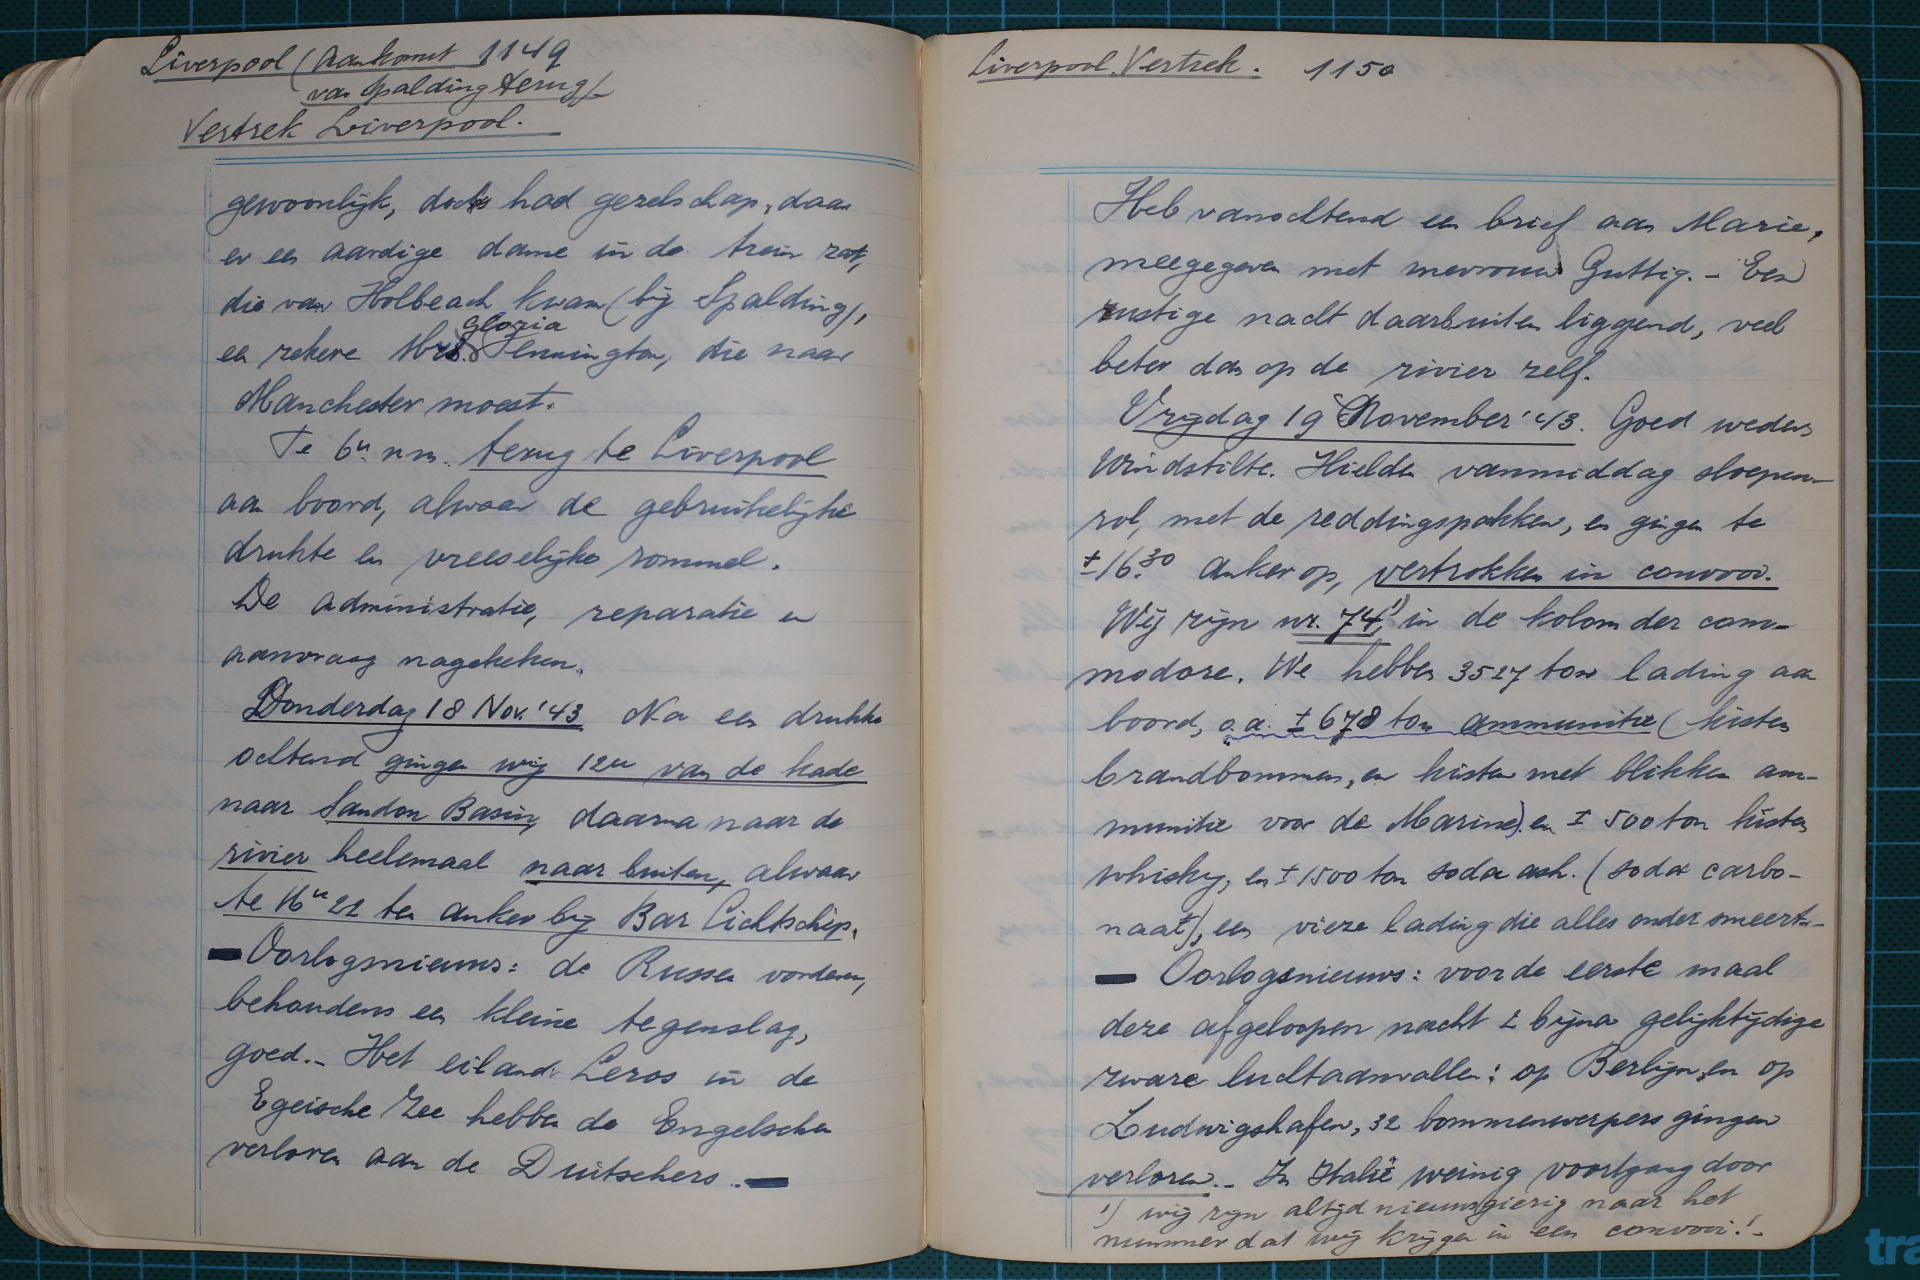 Liverpool (Aankomst 1149
van Spalding terug)
Vertrek Liverpool.
gewoonlijk, doch had gezelschap, daar
er een aardige dame in de trein zat,
die van Holbeach kwam (bij Spalding),
Gloria
een zekere Mrs. Pennington, die naar
Manchester moest.
Te 6u. nm. terug te Liverpool
aan boord, alwaar de gebruikelijke
drukte en vreeselijke rommel.
De administratie, reparatie en
aanvraag nagekeken.
Donderdag 18 Nov. '43 Na een drukke
ochtend gingen wij 12u van de kade
naar Sandon Basin, daarna naar de
rivier heelemaal naar buiten, alwaar
te 16u 22 ten anker bij Bar Lichtschip.
— Oorlogsnieuws: de Russen vorderen,
behoudens een kleine tegenslag,
goed. - Het eiland Leros in de
Egeische Zee hebben de Engelschen
verloren aan de Duitschers. —
Liverpool. Vertrek. 1150
Heb vanochtend een brief aan Marie,
meegegeven met mevrouw Guttig. - Een
rustige nacht daarbuiten liggend, veel
beter dan op de rivier zelf.
Vrijdag 19 November '43. Goed weder,
Windstilte. Hielden vanmiddag sloepen-
rol, met de reddingspakken, en gingen te
± 16.30 anker op, vertrokken in convooi.
Wij zijn nr. 74,1) in de kolom der com-
modore. We hebben 3527 ton lading aan
boord, o.a. ± 678 ton ammunitie (kisten
brandbommen, en kisten met blikken am-
munitie voor de Marine) en ± 500 ton kisten
whisky, en ± 1500 ton soda ash. (soda carbo-
naat), een vieze lading die alles onder smeert. -
— Oorlogsnieuws: voor de eerste maal
deze afgeloopen nacht 2 bijna gelijktijdige
zware luchtaanvallen: op Berlijn, en op
Ludwigshafen, 32 bommenwerpers gingen
verloren. - In Italië weinig voortgang door
1) wij zijn altijd nieuwsgierig naar het
nummer dat wij krijgen in een convooi! -
tra